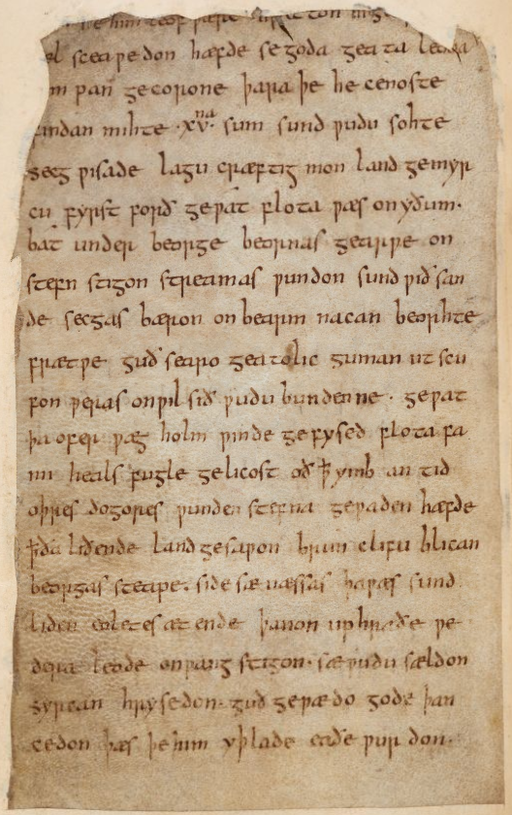 he him leof ƿære
sceaƿedon hæfde se goda geata leoda
ƿan gecorone þara þe he cenoste
findan mihte ·xv·na sum sund ƿudu sohte
secg ƿisade lagu cræftig mon land gemyr
cu fyrst forð geƿat flota ƿæs on yðum·
bat under beorge beornas gearƿe on
stefn stigon streamas ƿundon sund ƿið san
de secgas bæron on bearm nacan beorhte
frætƿe guð searo geatolic guman ut scu
fon ƿeras on ƿil sið ƿudu bundenne · geƿat
þa ofer ƿæg holm ƿinde gefysed flota fa
mi heals fugle gelicost oð ꝥ ymb an tid
oþres dogores ƿunden stefna geƿaden hæfde
ꝥ ða liðende land gesaƿon brim clifu blican
beorgas steape· side sæ næssas þa ƿæs sund
liden eoletes æt ende þanon up hraðe ƿe
dera leode on ƿang stigon· sæ ƿudu sældon
syrcan hrysedon· guð geƿædo gode þan
cedon þæs þe him yþlade eaðe ƿurdon·